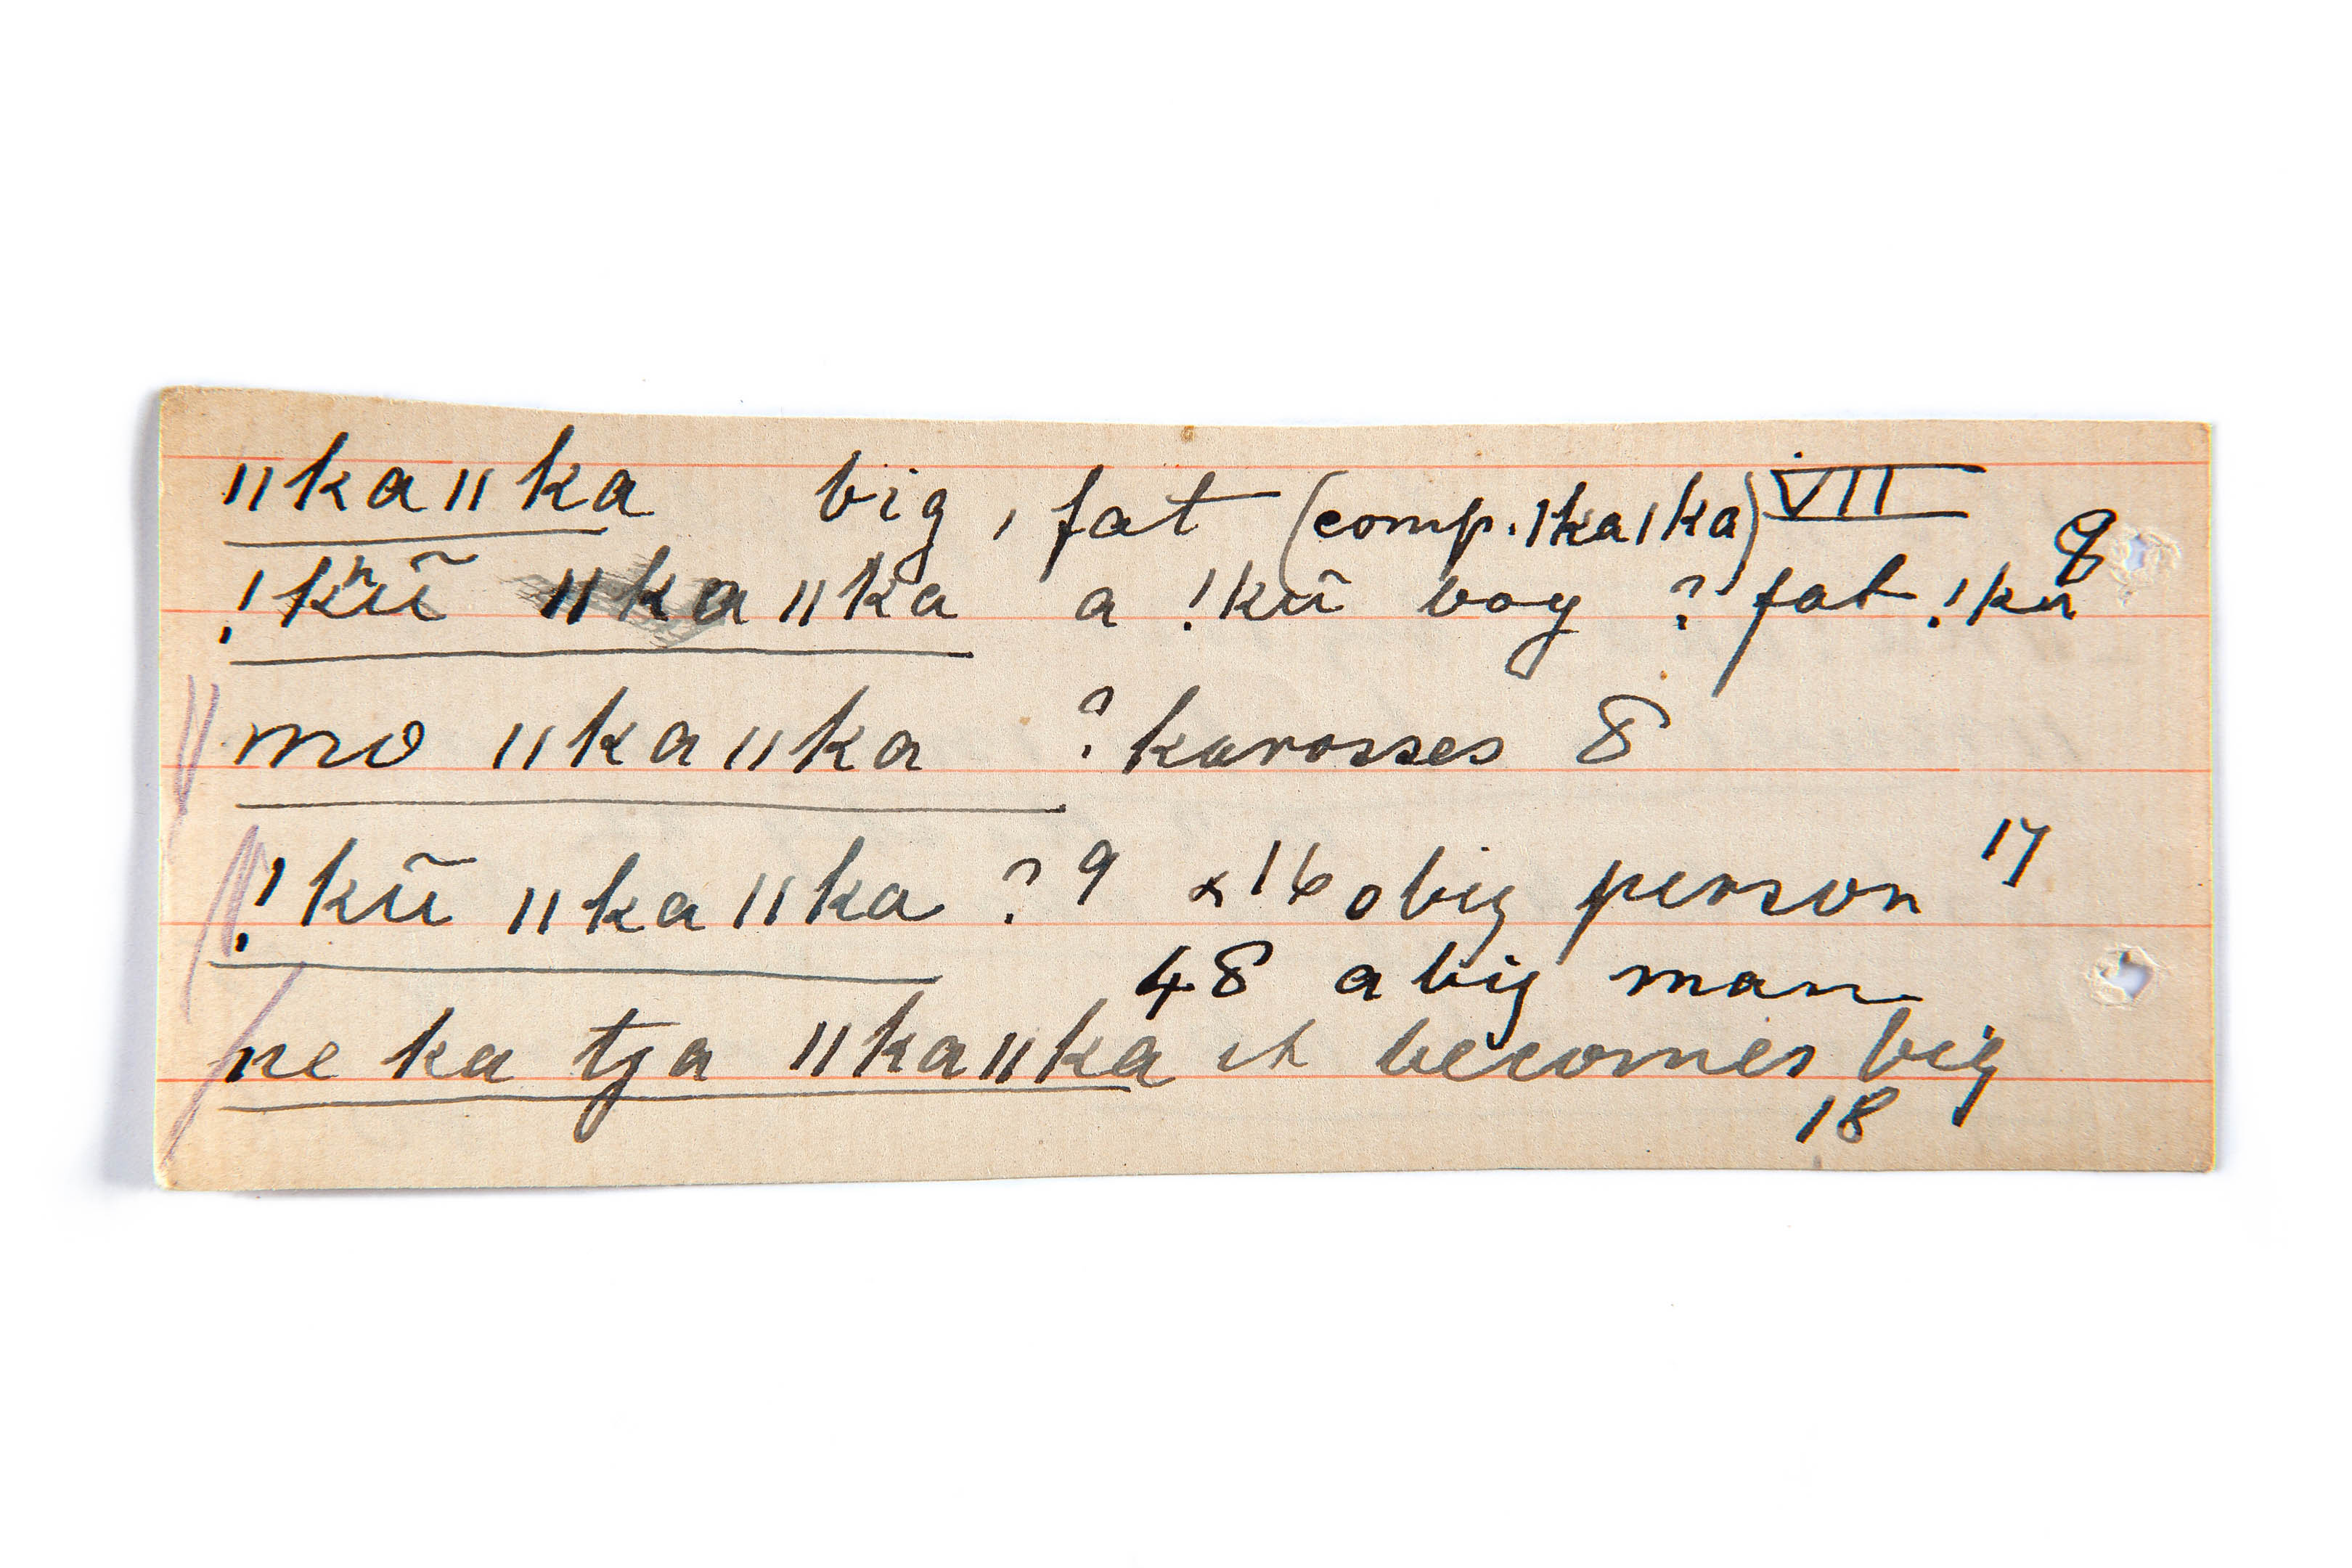 ǁkaǁka big, fat (comp. ǀkaǀka) VII
!kʰũ ǁkaǁka a !kũ boy ? fat !kũ 9
mo ǁkaǁka ? karosses 8
!kũ ǁkaǁka ? 9 & 16 a big person 17
48 a big man
ne ka tja ǁkaǁka it becomes big
18